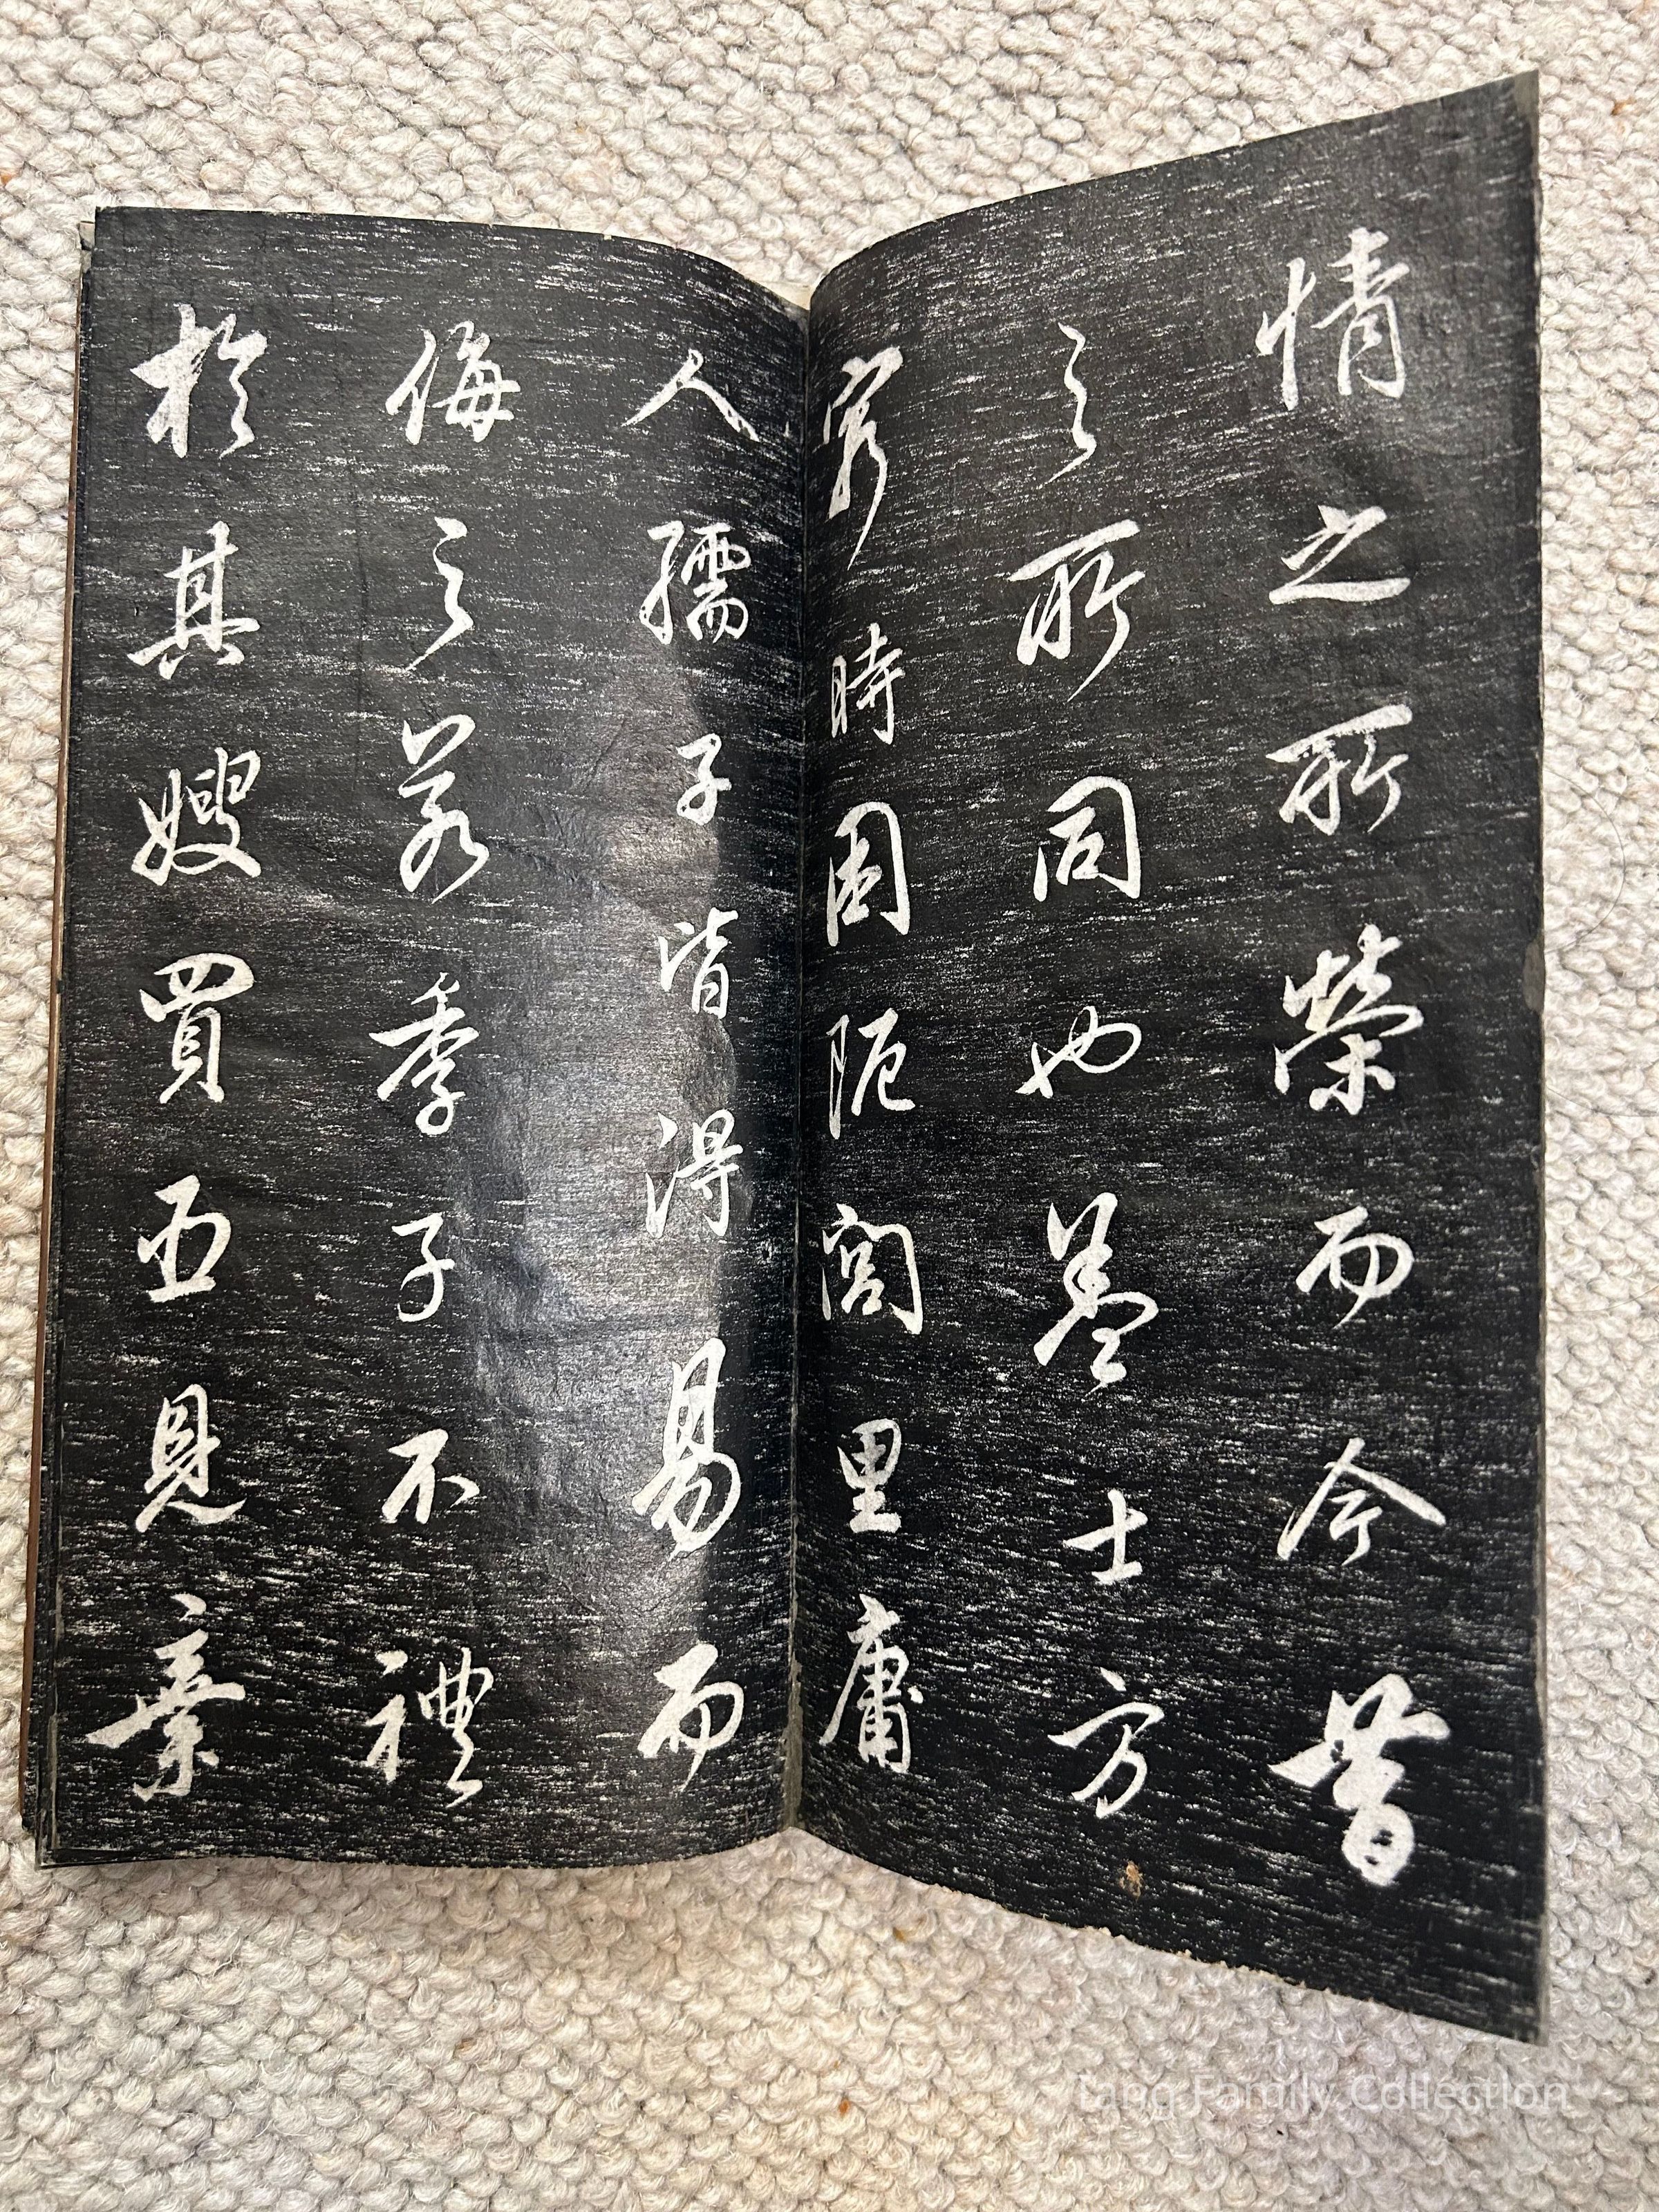 情之所榮而今昔
之所同也蓋士方
窮時困阨閭里庸
人孺子皆得易而
侮之若季子不禮
於其嫂買臣見棄
Tang Family Collection